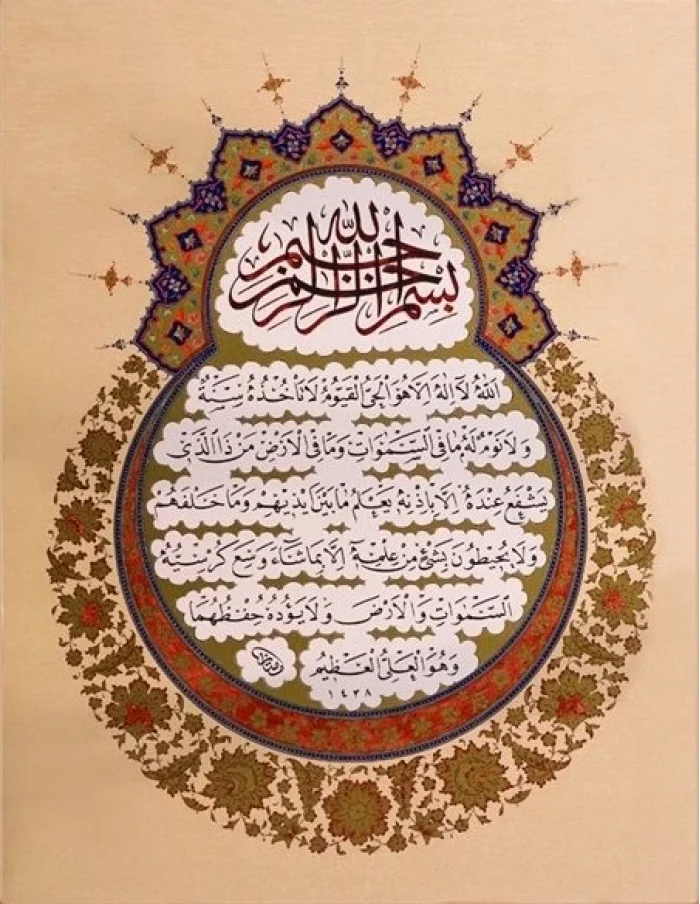 بِسْمِ اللّٰهِ الرَّحْمٰنِ الرَّحِيمِ
اَللّٰهُ لَٓا اِلٰهَ اِلَّا هُوَ الْحَىُّ الْقَيُّومُ لَا تَأْخُذُهُ سِنَةٌ
وَلَا نَوْمٌ لَهُ مَا فِى السَّمٰوَاتِ وَمَا فِى الْاَرْضِ مَنْ ذَا الَّذٖى
يَشْفَعُ عِنْدَهُ اِلَّا بِاِذْنِهٖ يَعْلَمُ مَا بَيْنَ اَيْدٖيهِمْ وَمَا خَلْفَهُمْ
وَلَا يُحٖيطُونَ بِشَىْءٍ مِنْ عِلْمِهٖٓ اِلَّا بِمَا شَٓاءَ وَسِعَ كُرْسِيُّهُ
السَّمٰوَاتِ وَالْاَرْضَ وَلَا يَؤُدُهُ حِفْظُهُمَا
وَهُوَ الْعَلِىُّ الْعَظٖيمُ
١٤٣٨